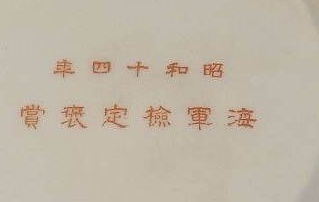 昭和十四年
海軍検定褒賞